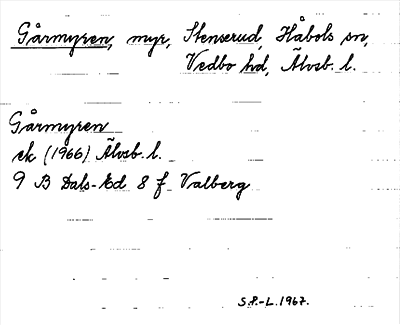 Gårmyren, myr, Stenserud, Håbols sn,
Vedbo hd, Älvsb. l.
Gårmyren
ek (1966) Älvsb. l.
9 B Dals-Ed 8 f Valberg
S.P.-L. 1967.